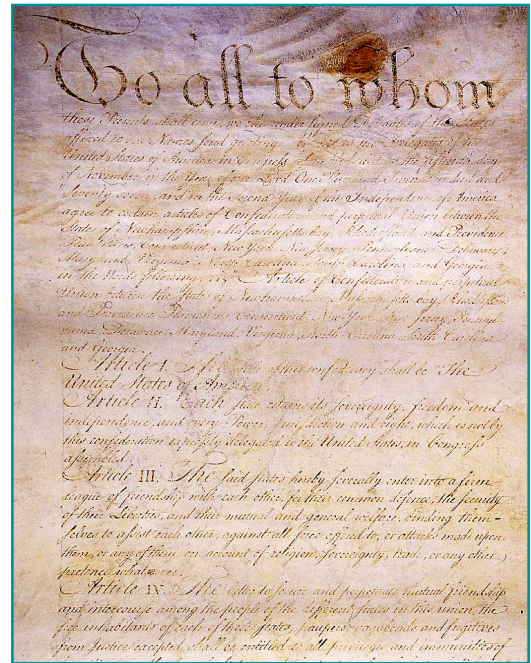 To all to whom
these Presents shall come, we the under signed Delegates of the States
affixed to our Names send greeting. Whereas the Delegates of the
United States of America in Congress assembled did on the fifteenth day
of November in the Year of our Lord One Thousand Seven Hundred and
Seventy seven, and in the Second Year of the Independence of America
agree to certain articles of Confederation and perpetual Union between the
States of Newhampshire, Massachusetts-bay, Rhodeisland and Providence
Plantations, Connecticut, New York, New Jersey, Pennsylvania, Delaware,
Maryland, Virginia, North Carolina, South Carolina, and Georgia
in the Words following, viz. Articles of Confederation and perpetual
Union between the States of Newhampshire, Massachusetts-bay, Rhodeisland
and Providence Plantations, Connecticut, New York, New Jersey, Pennsyl-
vania, Delaware, Maryland, Virginia, North Carolina, South Carolina
and Georgia.
Article I. The Stile of this confederacy shall be "The
United States of America."
Article II. Each state retains its sovereignty, freedom and
independence, and every Power, Jurisdiction and right, which is not by
this confederation expressly delegated to the United States, in Congress
assembled.
Article III. The said states hereby severally enter into a firm
league of friendship with each other, for their common defence, the security
of their Liberties, and their mutual and general welfare, binding them-
selves to assist each other, against all force offered to, or attacks made upon
them, or any of them, on account of religion, sovereignty, trade, or any other
pretence whatever.
Article IV. The better to secure and perpetuate mutual friendship
and intercourse among the people of the different states in this union, the
free inhabitants of each of these states, paupers, vagabonds and fugitives
from Justice excepted, shall be entitled to all privileges and immunities of